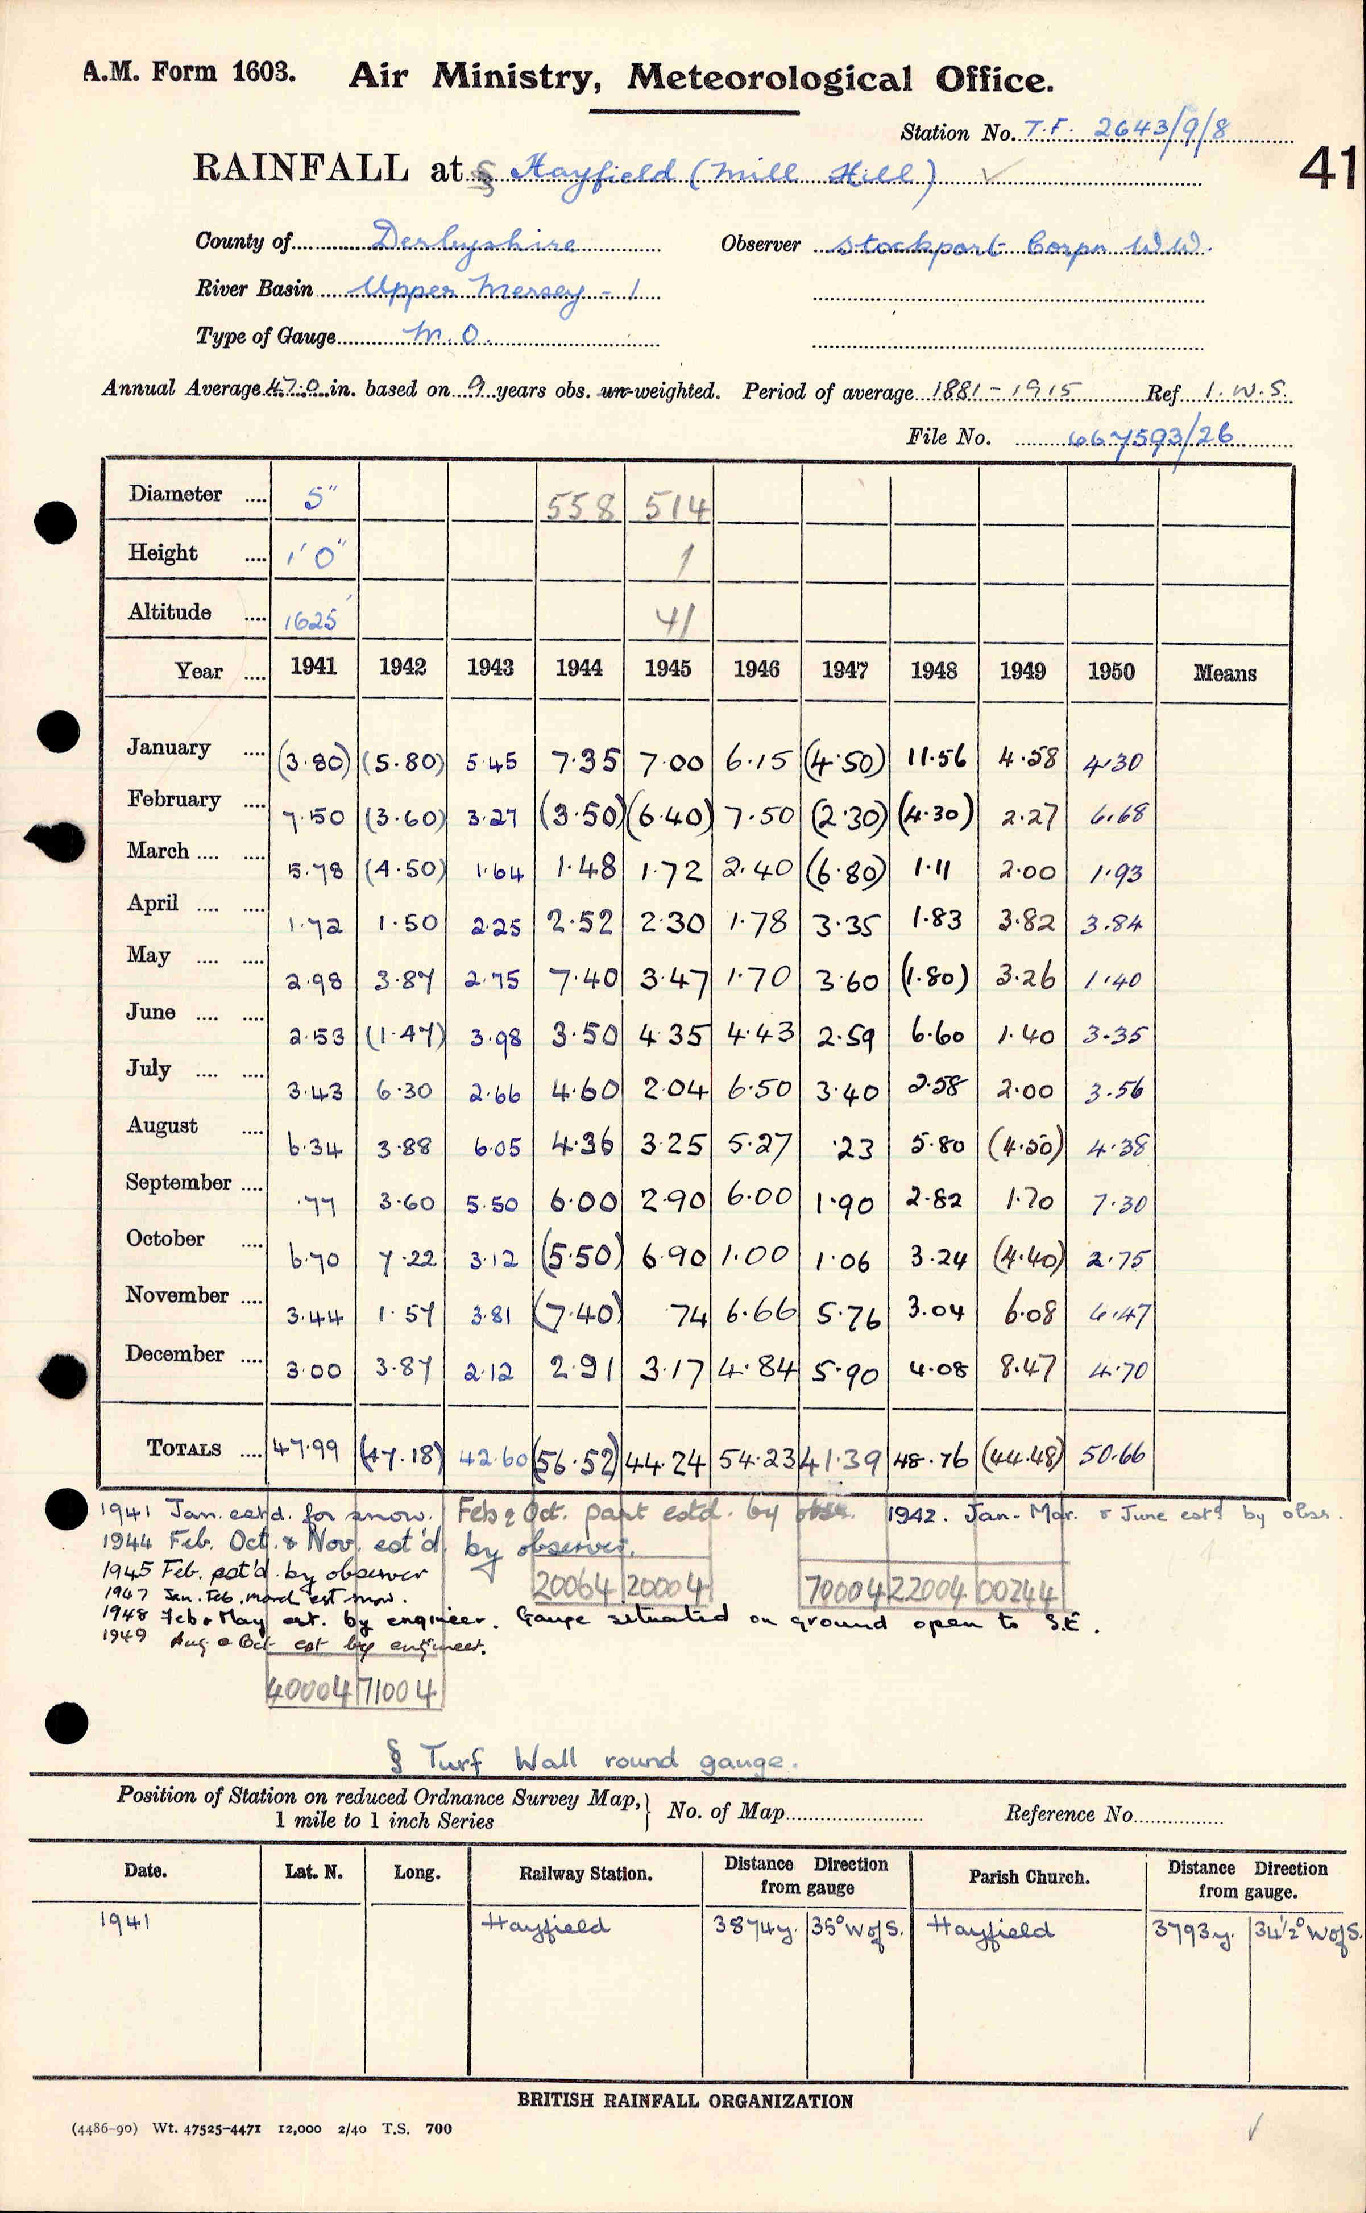 A.M. Form 1603. Air Ministry, Meteorological Office.
Station No. T.F. 2643/9/8
41
RAINFALL at § Hayfield (Mill Hill) ✓
County of Derbyshire Observer Stockport Corpn W.W.
River Basin Upper Mersey - 1
Type of Gauge M.O.
Annual Average 47.0 in. based on 9 years obs. un-weighted. Period of average 1881-1915 Ref I.W.S.
File No. 667593/26
Diameter .... 5" 558 514
Height .... 1'0" 1
Altitude .... 1625' 41
Year .... 1941 1942 1943 1944 1945 1946 1947 1948 1949 1950 Means
January .... (3.80) (5.80) 5.45 7.35 7.00 6.15 (4.50) 11.56 4.58 4.30
February .... 7.50 (3.60) 3.27 (3.50) (6.40) 7.50 (2.30) (4.30) 2.27 6.68
March .... .... 5.78 (4.50) 1.64 1.48 1.72 2.40 (6.80) 1.11 2.00 1.93
April .... .... 1.72 1.50 2.25 2.52 2.30 1.78 3.35 1.83 3.82 3.84
May .... .... 2.98 3.87 2.75 7.40 3.47 1.70 3.60 (1.80) 3.26 1.40
June .... .... 2.53 (1.47) 3.98 3.50 4.35 4.43 2.59 6.60 1.40 3.35
July .... .... 3.43 6.30 2.66 4.60 2.04 6.50 3.40 2.58 2.00 3.56
August .... 6.34 3.88 6.05 4.36 3.25 5.27 .23 5.80 (4.50) 4.38
September .... .77 3.60 5.50 6.00 2.90 6.00 1.90 2.82 1.70 7.30
October .... 6.70 7.22 3.12 (5.50) 6.90 1.00 1.06 3.24 (4.40) 2.75
November .... 3.44 1.57 3.81 (7.40) 74 6.66 5.76 3.04 6.08 6.47
December .... 3.00 3.87 2.12 2.91 3.17 4.84 5.90 4.08 8.47 4.70
TOTALS .... 47.99 (47.18) 42.60 (56.52) 44.24 54.23 41.39 48.76 (44.48) 50.66
1941 Jan. estd. for snow. Feb & Oct. part estd. by obsr. 1942. Jan-Mar. & June estd by obsr.
1944 Feb. Oct. & Nov. est'd. by observer.
1945 Feb. est'd. by observer
20064 20004 70004 22004 00244
1947 Jan. Feb. March est snow.
1948 Feb & May est. by engineer. Gauge situated on ground open to S.E.
1949 Aug & Oct est by engineer.
40004 71004
§ Turf Wall round gauge.
Position of Station on reduced Ordnance Survey Map, 1 mile to 1 inch Series } No. of Map Reference No.
Date. Lat. N. Long. Railway Station. Distance Direction from gauge Parish Church. Distance Direction from gauge.
1941 Hayfield 3874y. 35° W of S. Hayfield 3793y. 34½° W of S.
BRITISH RAINFALL ORGANIZATION
(4486-90) Wt. 47525-4471 12,000 2/40 T.S. 700